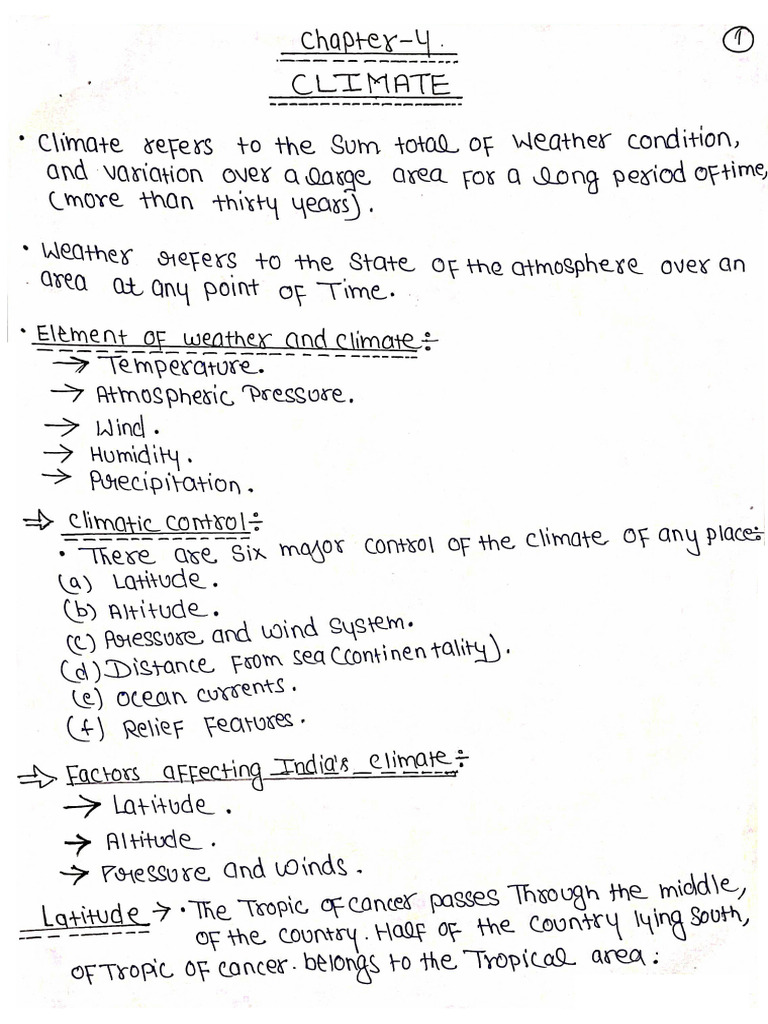 Chapter-4.
1
CLIMATE
• Climate refers to the Sum total of Weather condition,
and variation over a large area for a long period of time,
(more than thirty years).
• Weather refers to the State of the atmosphere over an
area at any point of Time.
• Element of weather and climate÷
→ Temperature.
→ Atmospheric Pressure.
→ Wind.
→ Humidity.
→ Precipitation.
⇒ Climatic control÷
• There are Six major control of the climate of any place÷
(a) Latitude.
(b) Altitude.
(c) Pressure and wind System.
(d) Distance from sea (continentality).
(e) ocean currents.
(f) Relief Features.
⇒ Factors affecting India's climate÷
→ Latitude.
→ Altitude.
→ Pressure and winds.
Latitude → • The Tropic of cancer passes Through the middle,
of the country. Half of the country lying South,
of Tropic of cancer. belongs to the Tropical area: